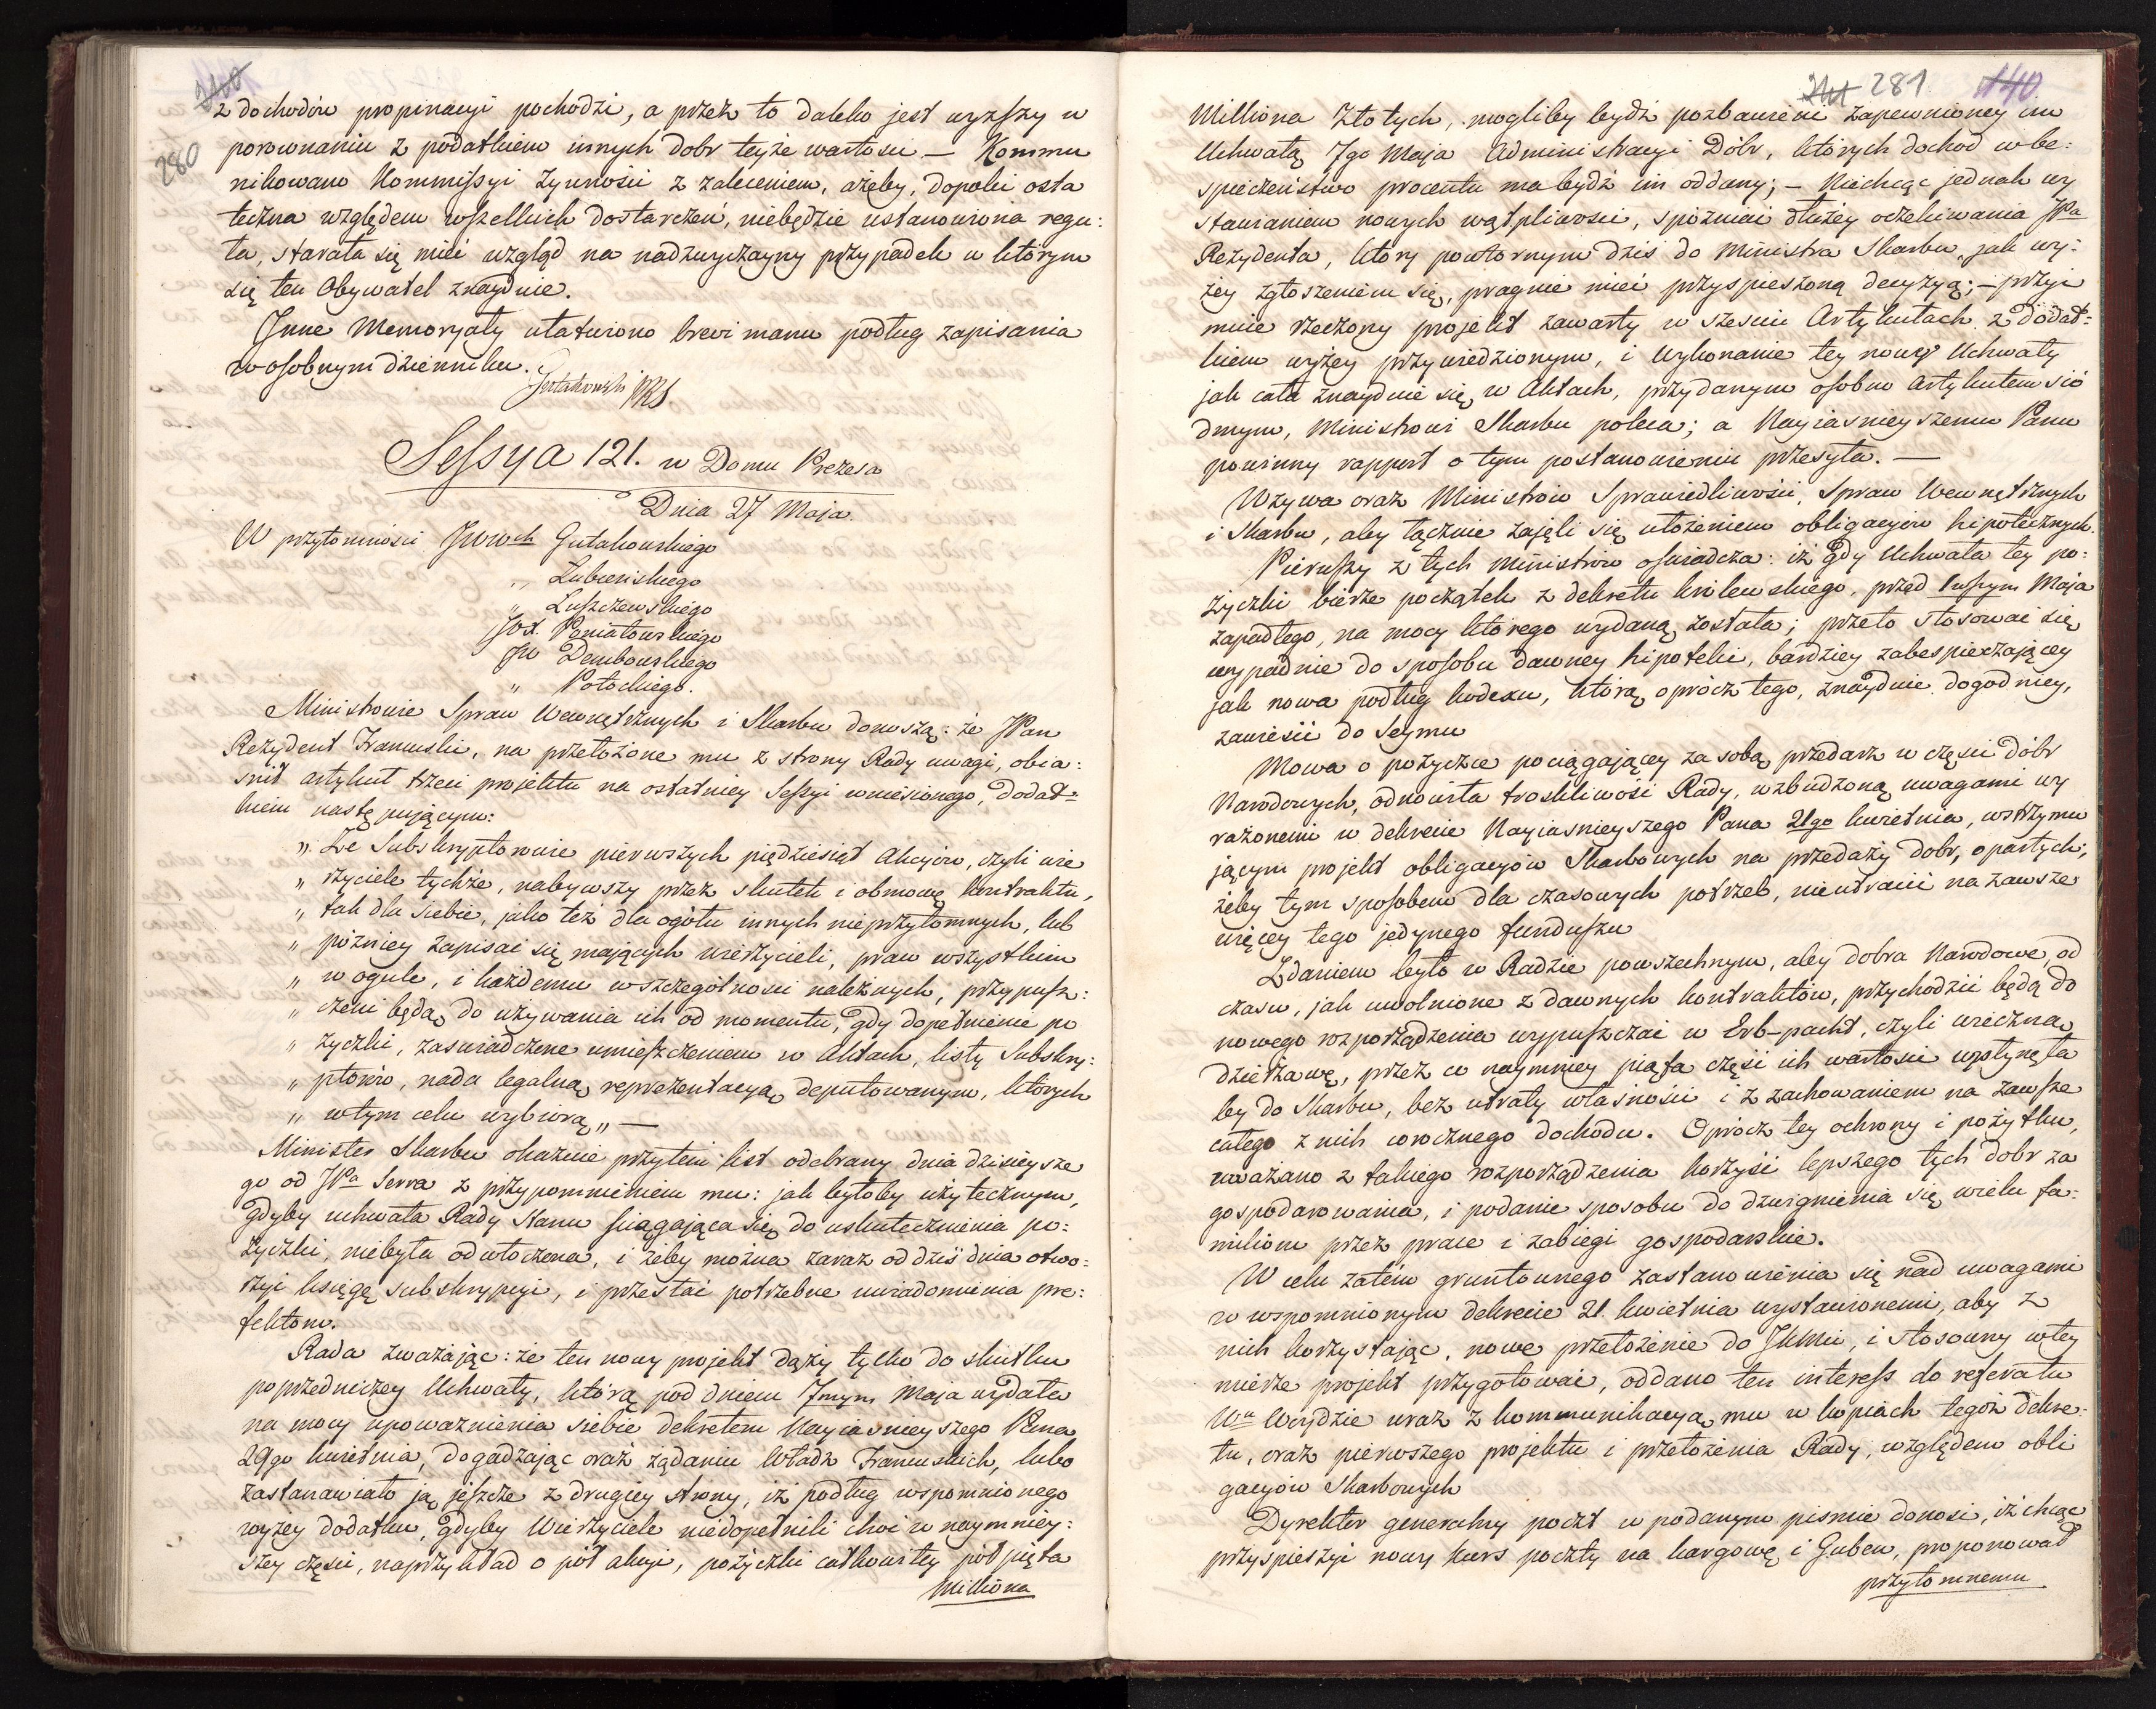 240
280
z dochodów propinacyi pochodzi, a przez to daleko jest wyższy w
porownaniu z podatkiem innych dobr teyże wartosci — Kommu
nikowano Kommissyi Żywności z zaleceniem, ażeby, dopoki osta
teczna względem wszelkich dostarczeń, niebędzie ustanowiona regu:
ła, starała się mieć wzgląd na nadzwyczayny przypadek w którym
się ten Obywatel znayduie.
Inne Memoryały ułatwiono brevi manu podług zapisania
w osobnym dzienniku.
Gutakowski PRS.
Sessya 121. w Domu Prezesa
Dnia 27 Maja.
W przytomności JWWch Gutakowskiego
" Łubienskiego
" Luszczewskiego
JOX. Poniatowskiego
JW Dembowskiego
" Potockiego.
Ministrowie Spraw Wewnętrznych i Skarbu donoszą: że JPan
Rezydent Francuski, na przełożone mu z strony Rady uwagi, obia:
snił artykuł trzeci projektu na ostatniey Sessyi wniesionego, dodat=
kiem następującym:
" Że Subskryptorowie pierwszych piędziesiąt Akcyiow, czyli wie
" rzyciele tychże, nabywszy przez skutek i obmowę kontraktu,
" tak dla siebie, jako też dla ogółu innych nieprzytomnych, lub
" pózniey zapisać się mających wierzycieli, praw wszystkim
" w ogule, i każdemu w szczególnosci należnych, przypusz:
" czeni będą do używania ich od momentu, gdy dopełnienie po
" życzki, zaswiadczone umieszczeniem w Aktach, listy Subskry:
" ptorów, nada legalną reprezentacyą deputowanym, których
" w tym celu wybiorą „ —
Minister Skarbu okazuie przytem list odebrany dnia dzisieysze
go od JPa Serra z przypomnieniem mu: jak byłoby użytecznym,
gdyby uchwała Rady Stanu sciągająca się do uskutecznienia po:
życzki, niebyła odwłoczona, i żeby można zaraz od dziś dnia otwo:
rzyć księgę subskrypcyi, i przesłać potrzebne uwiadomienia pre:
fektom.
Rada zważając: że ten nowy projekt dąży tylko do skutku
poprzedniczey Uchwały, którą pod dniem 7mym Maja wydała
na mocy upoważnienia siebie dekretem Nayiasnieyszego Pana
29go kwietnia, dogadzając oraz żądaniu Władz Francuskich, lubo
zastanawiało ją jeszcze z drugiey strony, iż podług wspomnionego
wyżey dodatku, gdyby Wierzyciele niedopełnili choć w naymniey:
szey części, naprzykład o pół akcyi, pożyczki całkowitey pół pięta
Milliona
241 281 140
Milliona Złotych, mogliby bydź pozbawieni zapewnioney im
Uchwałą 7go Maja Administracyi Dóbr, których dochod w be:
spieczeństwo procentu ma bydź im oddany; — Niechcąc jednak wy
stawianiem nowych wątpliwości, spóźniać dłużey oczekiwania JPa
Rezydenta, który powtornym dziś do Ministra Skarbu, jak wy:
żey zgłoszeniem się, pragnie mieć przyspieszoną decyzyą; — przyi
muie rzeczony projekt zawarty w szesciu Artykułach z dodat=
kiem wyżey przywiedzionym, i wykonanie tey nowey Uchwały
jak cała znayduie się w Aktach, przydanym osobno artykułem sió
dmym, Ministrowi Skarbu poleca; a Nayiasnieyszemu Panu
powinny rapport o tym postanowieniu przesyła. —
Wzywa oraz Ministrów Sprawiedliwości, Spraw Wewnętrznych
i Skarbu, aby łącznie zajęli się ułożeniem obligacyiow hipotecznych.
Pierwszy z tych ministrów oswiadcza: iż gdy Uchwała tey po:
życzki bierze początek z dekretu krolewskiego, przed 1wszym Maja
zapadłego, na mocy którego wydaną została; przeto stosować się
wypadnie do sposobu dawney hipoteki, bardziey zabespieczającey
jak nowa podług kodexu, którą oprócz tego, znayduie dogodniey,
zawiesić do Seymu
Mowa o pożyczce pociągającey za sobą przedarz w części dóbr
Narodowych, odnowiła troskliwość Rady, wzbudzoną uwagami wy
rażonemi w dekrecie Nayiasnieyszego Pana 21go kwietnia, wstrzymu
jącym projekt obligacyiow Skarbowych na przedaży dobr, opartych;
żeby tym sposobem dla czasowych potrzeb, nieutracić na zawsze
więcey tego jedynego funduszu
Zdaniem było w Radzie powszechnym, aby dobra Narodowe, od
czasu, jak uwolnione z dawnych kontraktów, przychodzić będą do
nowego rozporządzenia wypuszczać w Erb-pacht, czyli wieczną
dzierżawę, przez co naymniey piąta część ich wartosci wpłynęła
by do Skarbu, bez utraty własności i z zachowaniem na zawsze
całego z nich corocznego dochodu. Oprócz tey ochrony i pożytku,
uważano z takiego rozporządzenia korzyść lepszego tych dobr za
gospodarowania, i podanie sposobu do dzwignienia się wielu fa:
miliom przez prace i zabiegi gospodarskie.
W celu zatém gruntownego zastanowienia się nad uwagami
w wspomnionym dekrecie 21. kwietnia wystawionemi, aby z
nich korzystając, nowe przełożenie do JKMci, i stosowny w tey
mierze projekt przygotować, oddano ten interess do referatu
Wu Woydzie wraz z kommunikacyą mu w kopiach tegoż dekre:
tu, oraz pierwszego projektu i przełożenia Rady, względem obli
gacyiow Skarbowych
Dyrektor generalny poczt w podanym pismie donosi, iż chcąc
przyspieszyć nowy kurs poczty na Kargowę i Guben, proponował
przytomnemu